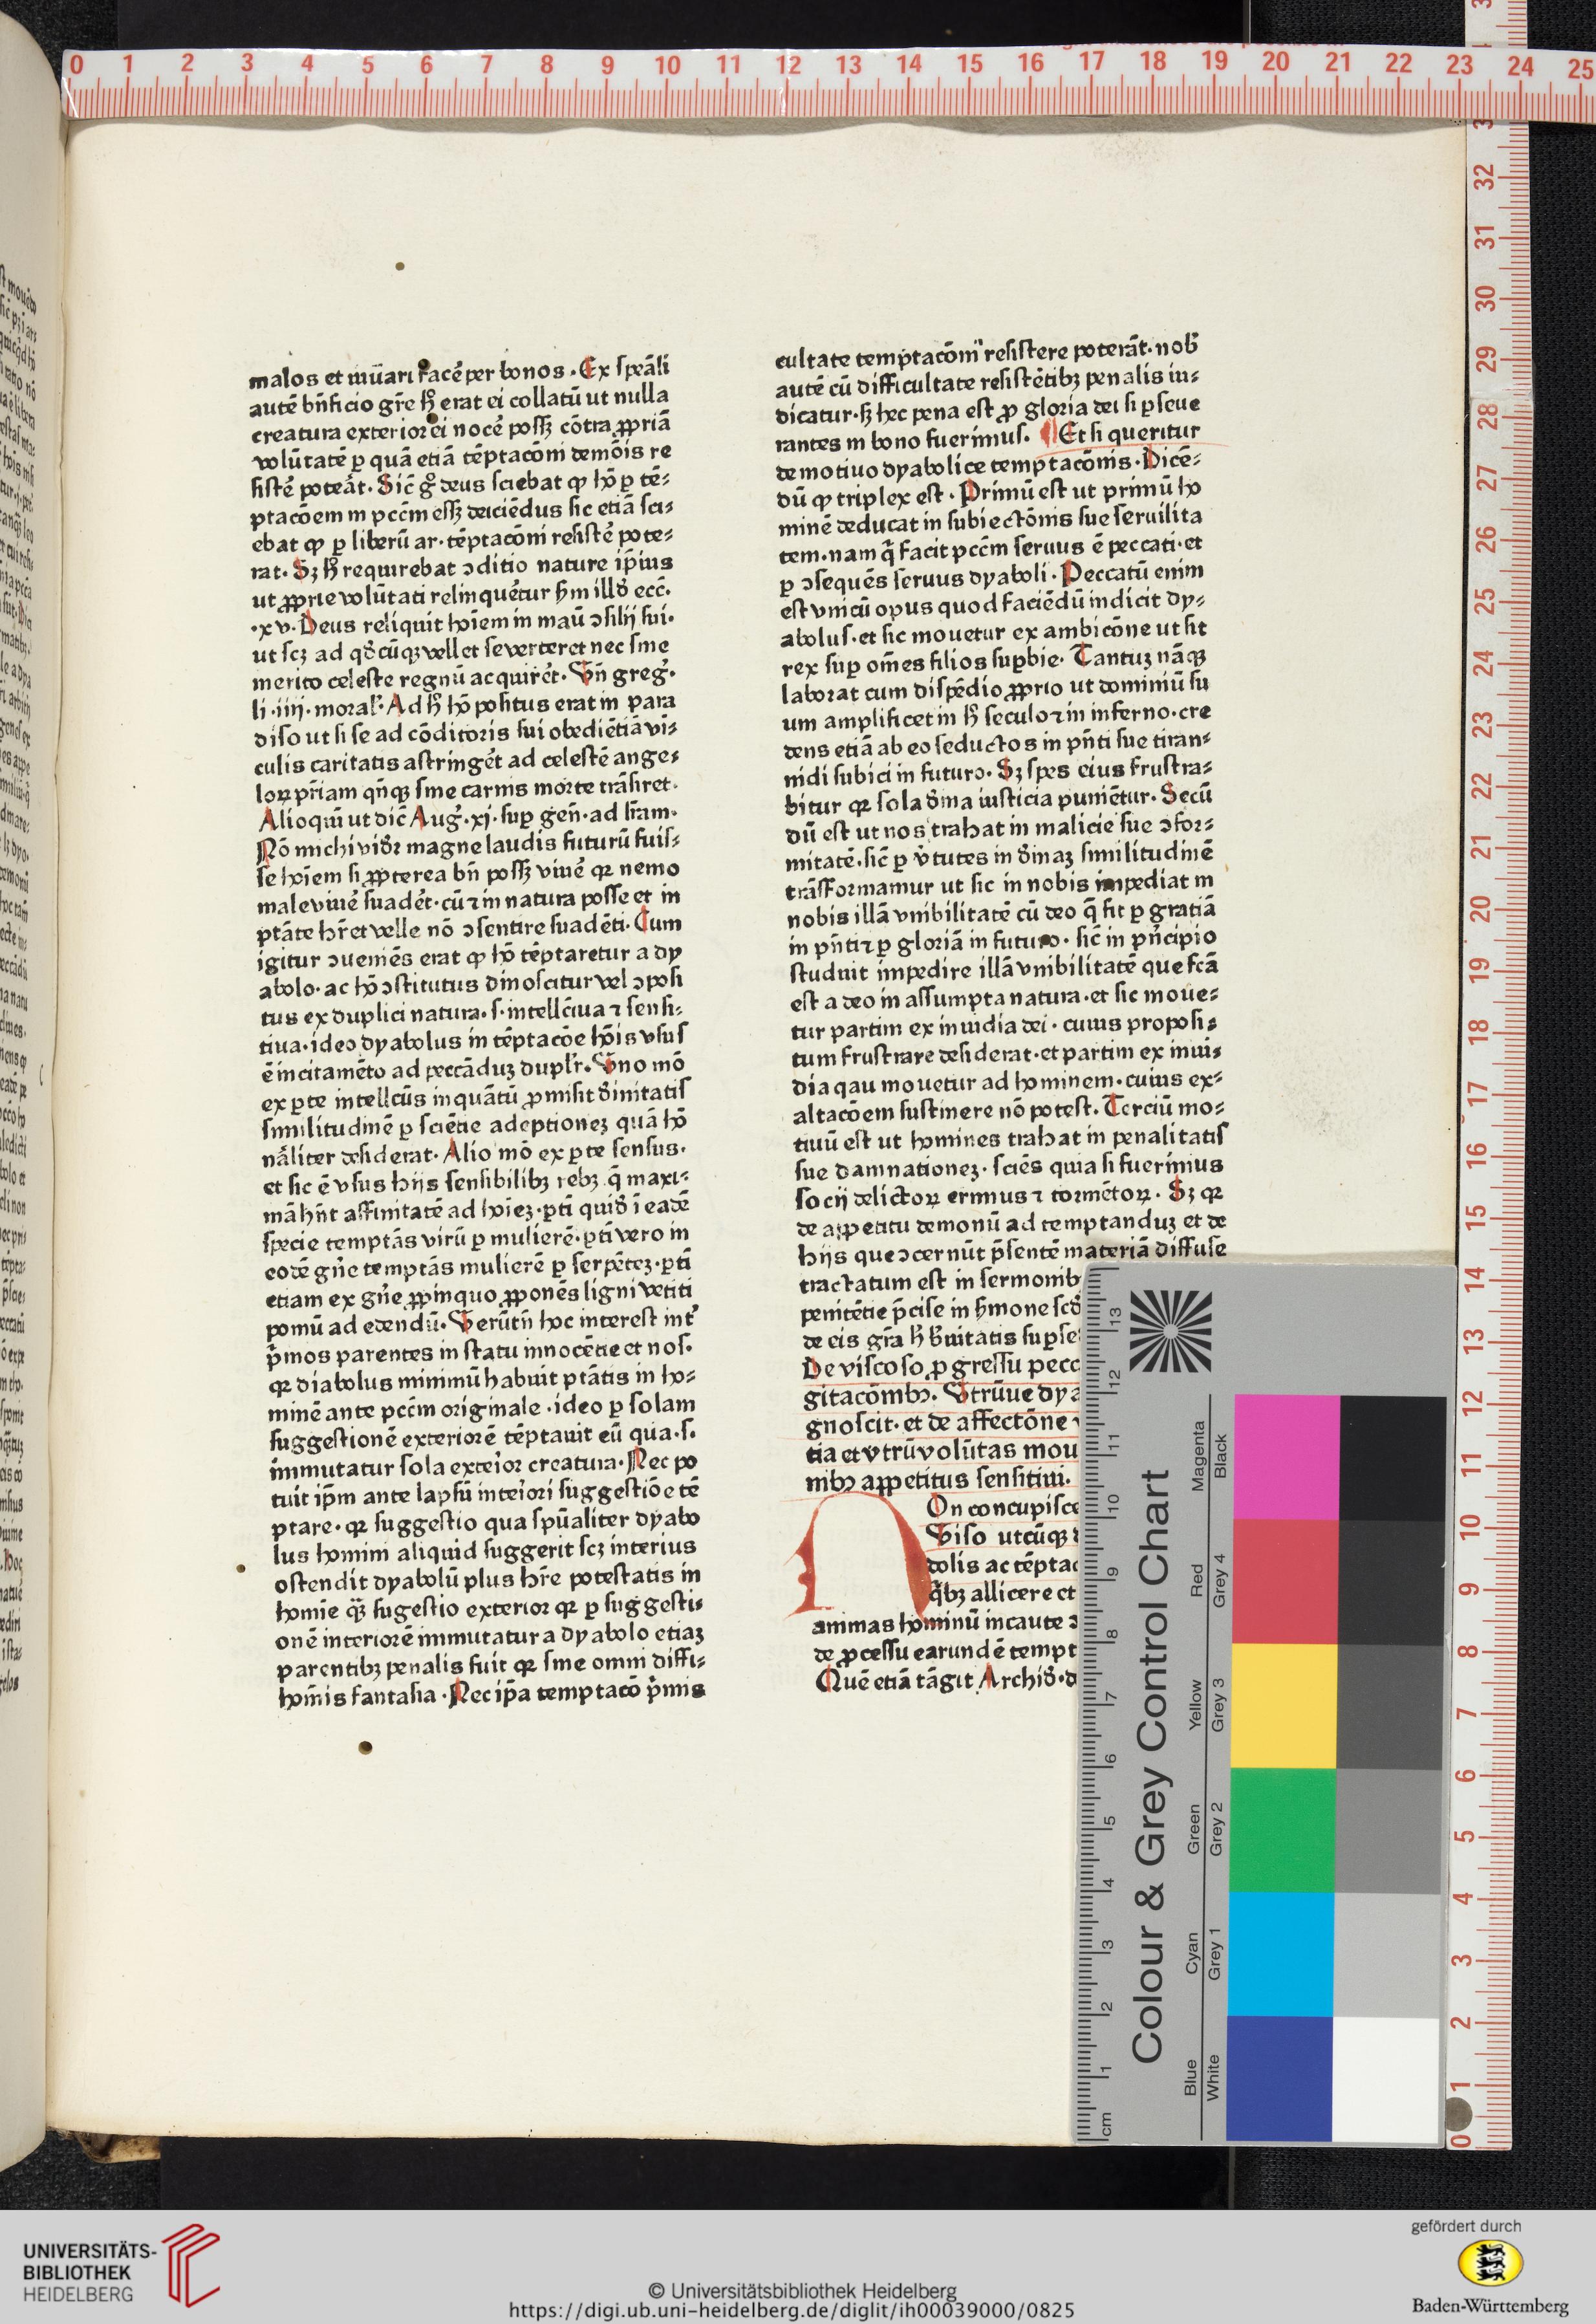 malos et iuuari facē per bonos . Ex spēali
autē bn̄ficio grē hͦ erat ei collatū ut nulla
creatura exterior ei nocē possꝫ cōtra ꝓpriā
volūtatē ꝑ quā etiā tēptacōni demōis re
sistē poteāt. Sic gͦ deus sciebat ꝙ hō ꝑ tē-
ptacōem in pccm̄ essꝫ deiciēdus sic etiā sci-
ebat ꝙ ꝑ liberū ar. tēptacōni resistē pote-
rat. Sꝫ hͦ requirebat ꝯditio nature ip̄ius
ut ꝓprie volūtati relinquētur sm̄ illō ecc̄.
.xv. Deus reliquit hoīem in manū ꝯsilij sui.
ut scꝫ ad qōcūqꝫ vellet se verteret nec sine
merito celeste regnū acquirēt. Vn̄ greg̾.
li .iiij. moral̾. Ad hͦ hō positus erat in para
diso ut si se ad cōditoris sui obediētiā vī-
culis caritatis astringēt ad celestē ange-
loꝝ pr̄iam qn̄qꝫ sine carnis morte trāsiret.
Alioquī ut dic̄ Aug̾. xj. suꝑ gen̄. ad lr̄am.
Nō michi vidr̄ magne laudis futurū fuis-
se hoīem si ꝓpterea bn̄ possꝫ viuē qꝛ nemo
male viuē suadēt. cū ⁊ in natura posse et in
ptāte hr̄et velle nō ꝯsentire suadēti. Cum
igitur ꝯueniēs erat ꝙ hō tēptaretur a dy
abolo. ac hō ꝯstitutus dinoscitur vel ꝯposi
tus ex duplici natura. s. intellc̄iua ⁊ sensi-
tiua. ideo dyabolus in tēptacōe hōis vsus
ē incitamēto ad peccāduꝫ duplr̄. Vno mō
ex ꝑte intellcūs inquātū ꝓmisit dīinitatis
similitudinē ꝑ sciētie adeptioneꝫ quā hō
nāliter desiderat. Alio mō ex ꝑte sensus.
et sic ē vsus hijs sensibilibꝫ rebꝫ q̄ maxi-
mā hn̄t affinitatē ad hoīeꝫ. ꝑti quid̾ ī eadē
specie temptās virū ꝑ mulierē. ꝑti vero in
eodē gn̄e temptās mulierē ꝑ serpētēꝫ. ꝑti
etiam ex gn̄e ꝓpinquo ꝓponēs ligni vetiti
pomū ad edendū. Verūtn̄ hoc interest int̾
p̄mos parentes in statu innocētie et nos.
qꝛ diabolus minimū habuit ptātis in ho-
minē ante pccm̄ originale . ideo ꝑ solam
suggestionē exteriorē tēptauit eū qua .s.
immutatur sola exteior creatura. Nec po
tuit ip̄m ante lapsū inteiori suggestiōe tē
ptare. qꝛ suggestio qua spūaliter dyabo
lus homini aliquid suggerit scꝫ interius
ostendit dyabolū plus hr̄e potestatis in
homīe qꝫ sugestio exterior qꝛ ꝑ suggesti-
onē interiorē immutatur a dyabolo etiaꝫ
hoīnis fantasia . Nec ip̄a temptacō p̄mis
parentibꝫ penalis fuit qꝛ sine omni diffi-
cultate temptacōni resistere poterāt. nob̾
autē cū difficultate resistētibꝫ penalis in-
dicatur. sꝫ hec pena est ꝓ gloria dei si ꝑseue
rantes in bono fuerimus. ¶ Et si queritur
de motiuo dyabolice temptacōnis. Dicē-
dū ꝙ triplex est . Primū est ut primū ho
minē deducat in subiectōnis sue seruilita
tem. nam q̄ facit pccm̄ seruus ē peccati. et
ꝑ ꝯsequēs seruus dyaboli. Peccatū enim
est vnicū opus quod faciēdū indicit dy-
abolus. et sic mouetur ex ambicōne ut sit
rex suꝑ om̄es filios suꝑbie. Tantuꝫ nāqꝫ
laborat cum dispēdio ꝓprio ut dominiū su
um amplificet in hͦ seculo ⁊ in inferno. cre
dens etiā ab eo seductos in pn̄ti sue tiran-
nidi subici in futuro. Sꝫ spes eius frustra-
bitur qꝛ sola dīna iusticia punietur. Secū
dū est ut nos trahat in malicie sue ꝯfor-
mitatē. sic̄ ꝑ v̾tutes in dīinaꝫ similitudinē
trāsformamur ut sic in nobis impediat in
nobis illā vnibilitatē cū deo q̄ fit ꝑ gratiā
in pn̄ti ⁊ ꝑ gloriā in futuro. sic̄ in pn̄cipio
studuit impedire illā vnibilitatē que fcā
est a deo in assumpta natura. et sic moue-
tur partim ex inuidia dei. cuius proposi-
tum frustrare desiderat. et partim ex inui-
dia qua mouetur ad hominem. cuius ex-
altacōem sustinere nō potest. Terciū mo-
tiuū est ut homines trahat in penalitatis
sue damnationeꝫ. sciēs quia si fuerimus
socij delictoꝝ erimus ⁊ tormētoꝝ . Sꝫ qꝛ
de appetitu demonū ad temptanduꝫ et de
hijs que ꝯcernūt p̄sentē materiā diffuse
tractatum est in sermonib
penitētie p̄cise in s̄mone scd̾
de eis gr̄a hͦ br̄uitatis suꝑse
De viscoso ꝓgressu pecc
gitacōnibꝫ. Vtrūue dya
gnoscit. et de affectōne
tia et vtrū volūtas mou
nibꝫ appetitus sensitiui.
NOn concupisce
Viso utcūqꝫ
dolis ac tēptac
q̄bꝫ allicere et
animas hominū incaute
de ꝓcessu earundē tempt
Quē etiā tāgit Archid̾.
0 1 2 3 4 5 6 7 8 9 10 11 12 13 14 15 16 17 18 19 20 21 22 23 24 25
32 31 30 29 28 27 26 25 24 23 22 21 20 19 18 17 16 15 14 13 12 11 10 9 8 7 6 5 4 3 2 1 0
Colour & Grey Control Chart
cm 1 2 3 4 5 6 7 8 9 10 11 12 13
Blue Cyan Green Yellow Red Magenta
White Grey 1 Grey 2 Grey 3 Grey 4 Black
UNIVERSITÄTS-
BIBLIOTHEK
HEIDELBERG
© Universitätsbibliothek Heidelberg
https://digi.ub.uni-heidelberg.de/diglit/ih00039000/0825
gefördert durch
Baden-Württemberg